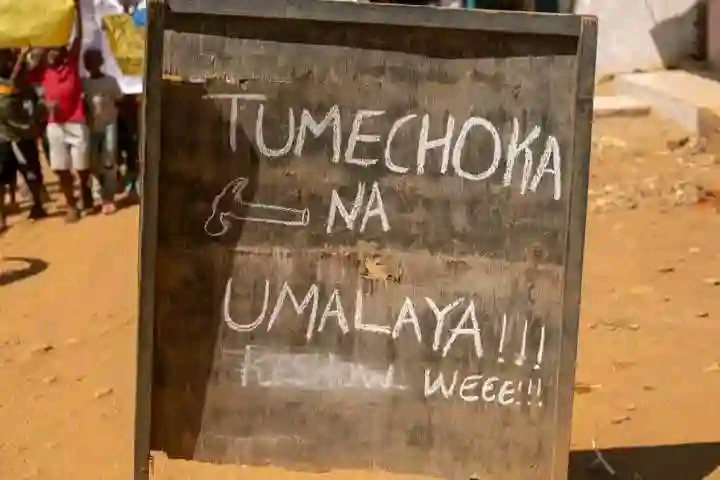 TUMECHOKA
NA
UMALAYA!!!
WEEE!!!